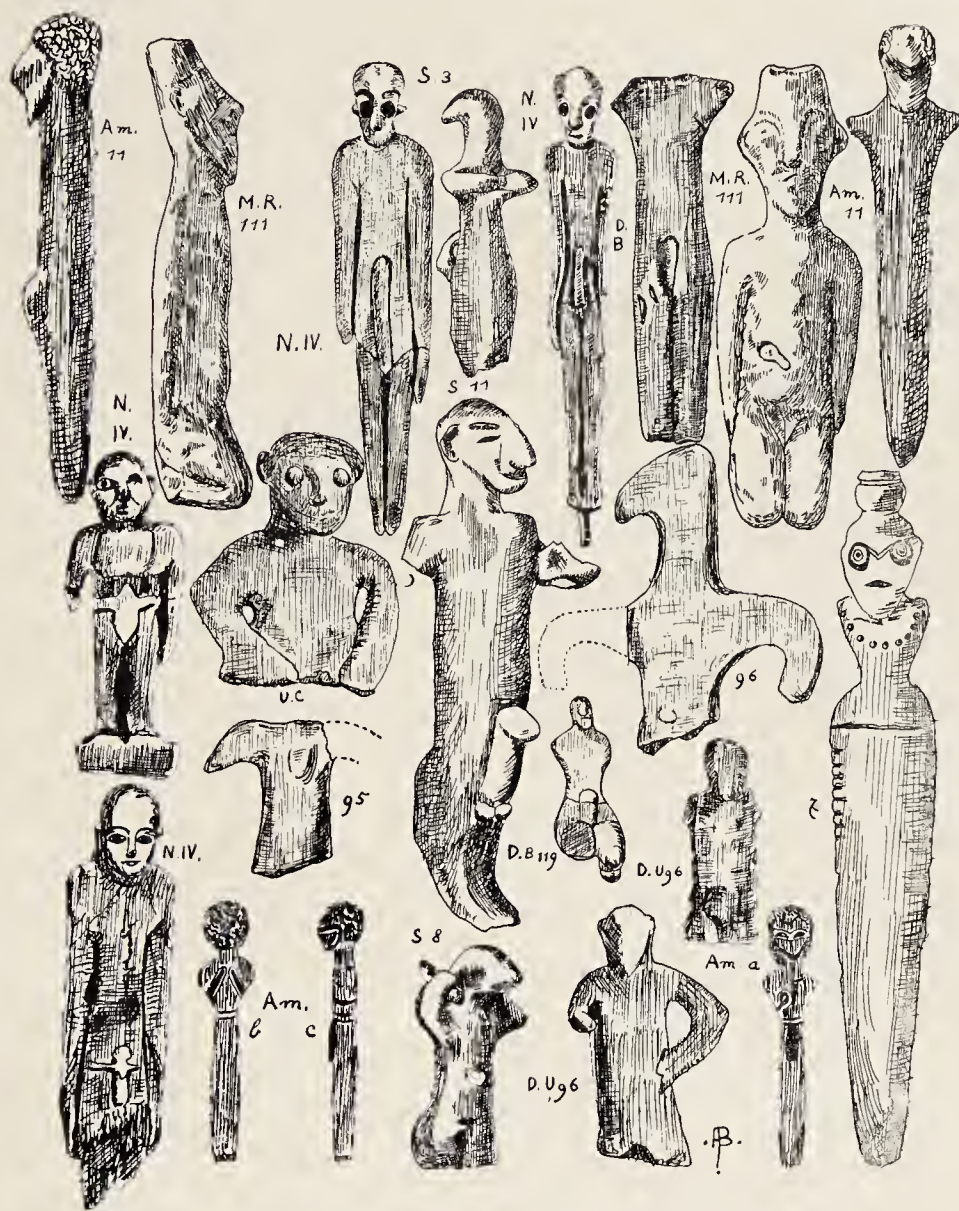 Am.
11
M.R.
111
S 3
N.
IV
D.
B
M.R.
111
Am.
11
N. IV.
S 11
N.
IV.
U.C
96
95
D.B 119
D. U96
N.IV.
Am.
b
c
S 8
Am a
D. U96
.AB.